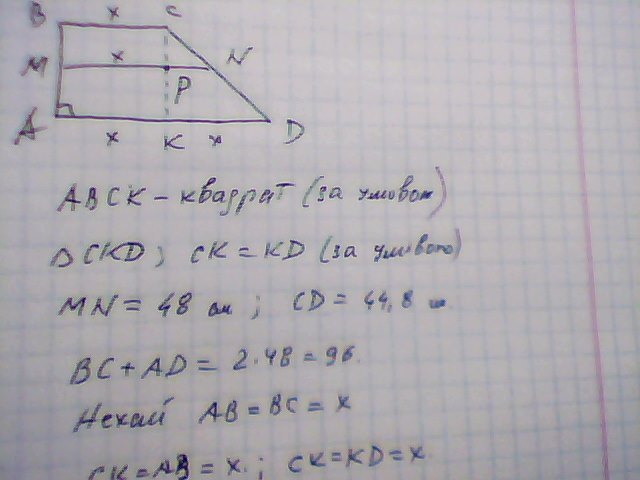 B x C
M x N
P
A x K x D
ABCK – квадрат (за умовою)
△CKD; CK = KD (за умовою)
MN = 48 см; CD = 44,8 см
BC + AD = 2·48 = 96.
Нехай AB = BC = x
CK = AB = x.; CK = KD = x.